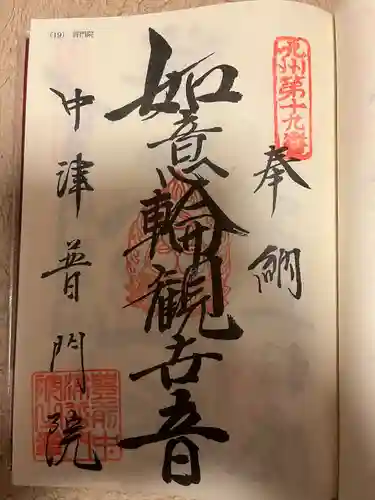 (19) 普門院
九州第十九番
奉納
如意輪観世音
中津普門院